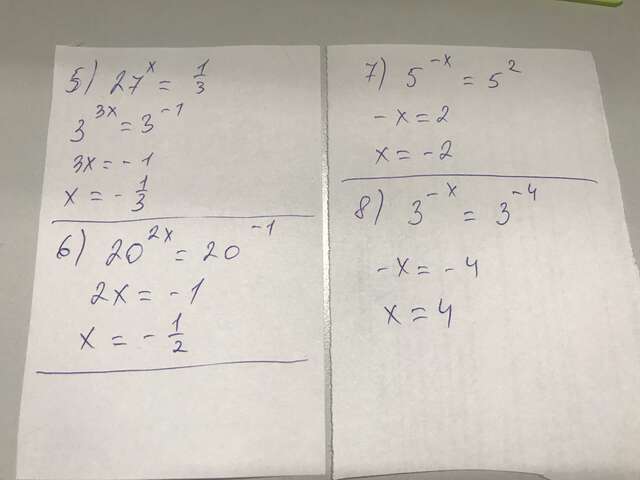 5) 27^x = 1/3
3^3x = 3^-1
3x = -1
x = - 1/3
6) 20^2x = 20^-1
2x = -1
x = - 1/2
7) 5^-x = 5^2
-x = 2
x = -2
8) 3^-x = 3^-4
-x = -4
x = 4